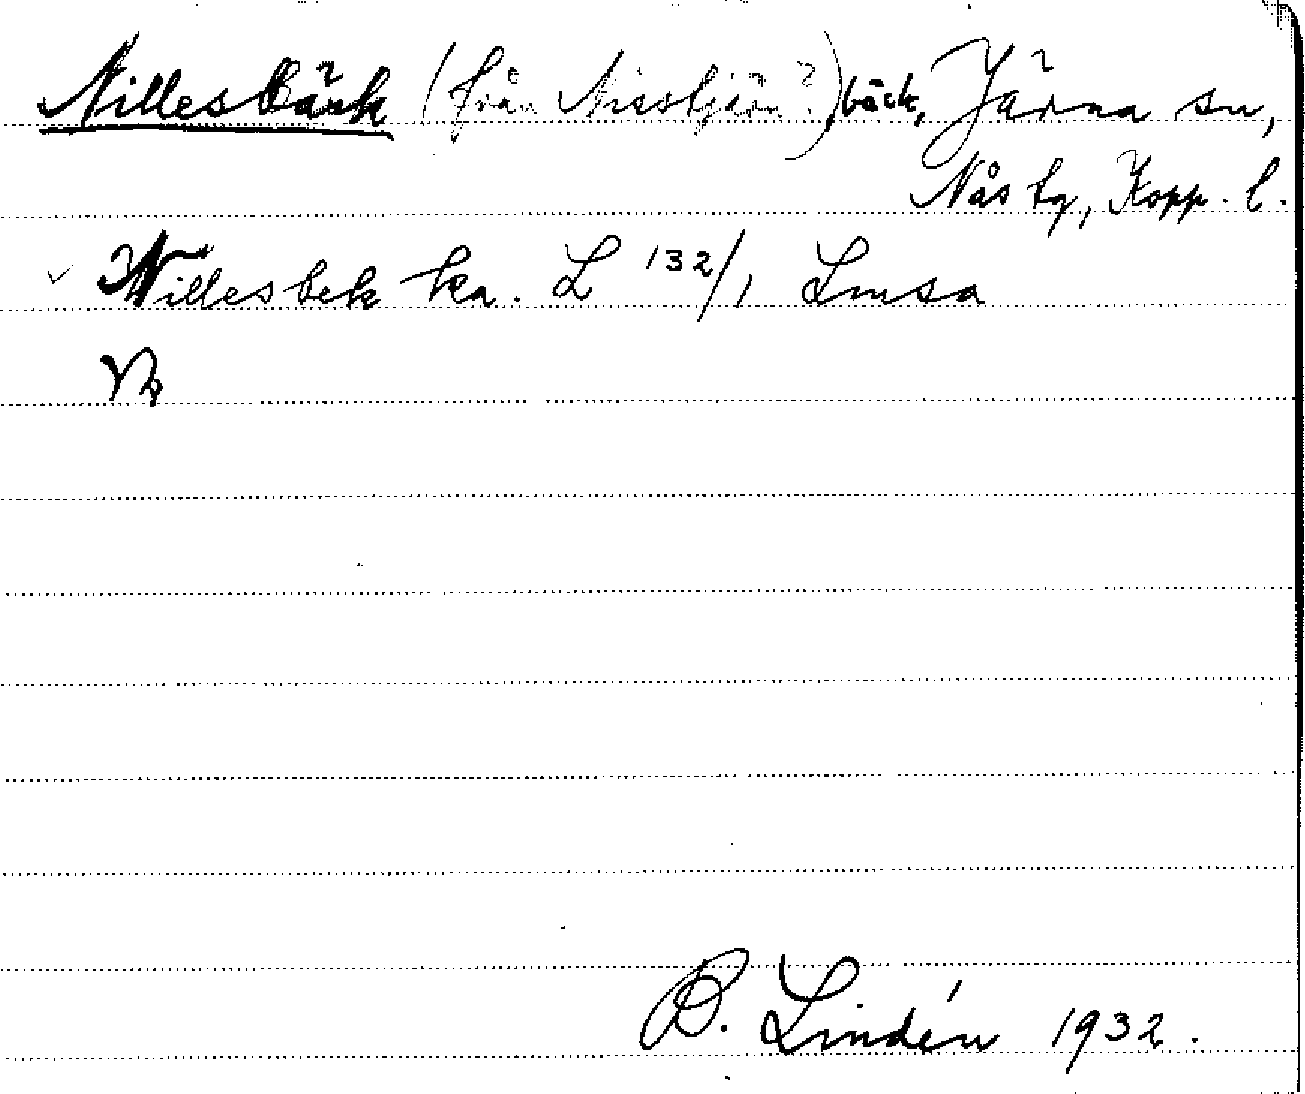 Nillesbäck (från Nissbjärn?) bäck, Järna sn,
Nås tg, Kopp. l.
Nillesbek ka. L 132/1 Lmsa
B. Lindén 1932.